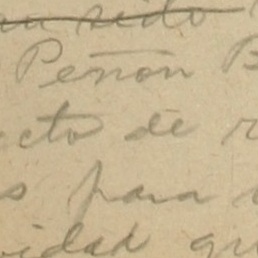 sido
Peñon B
ecto de r
s para
idad qu